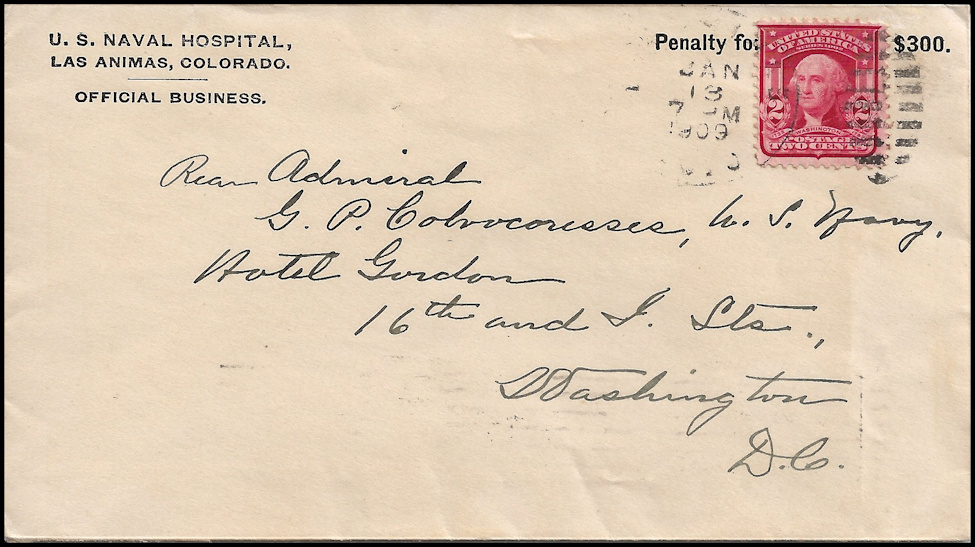 U. S. NAVAL HOSPITAL,
LAS ANIMAS, COLORADO.
OFFICIAL BUSINESS.
Penalty for $300.
JAN
13
7 PM
1909
UNITED STATES
OF AMERICA
SERIES 1902
2 2
WASHINGTON
POSTAGE
TWO CENTS
Rear Admiral
G. P. Colvocoresses, U. S. Navy,
Hotel Gordon
16th and I. Sts.,
Washington
D.C.